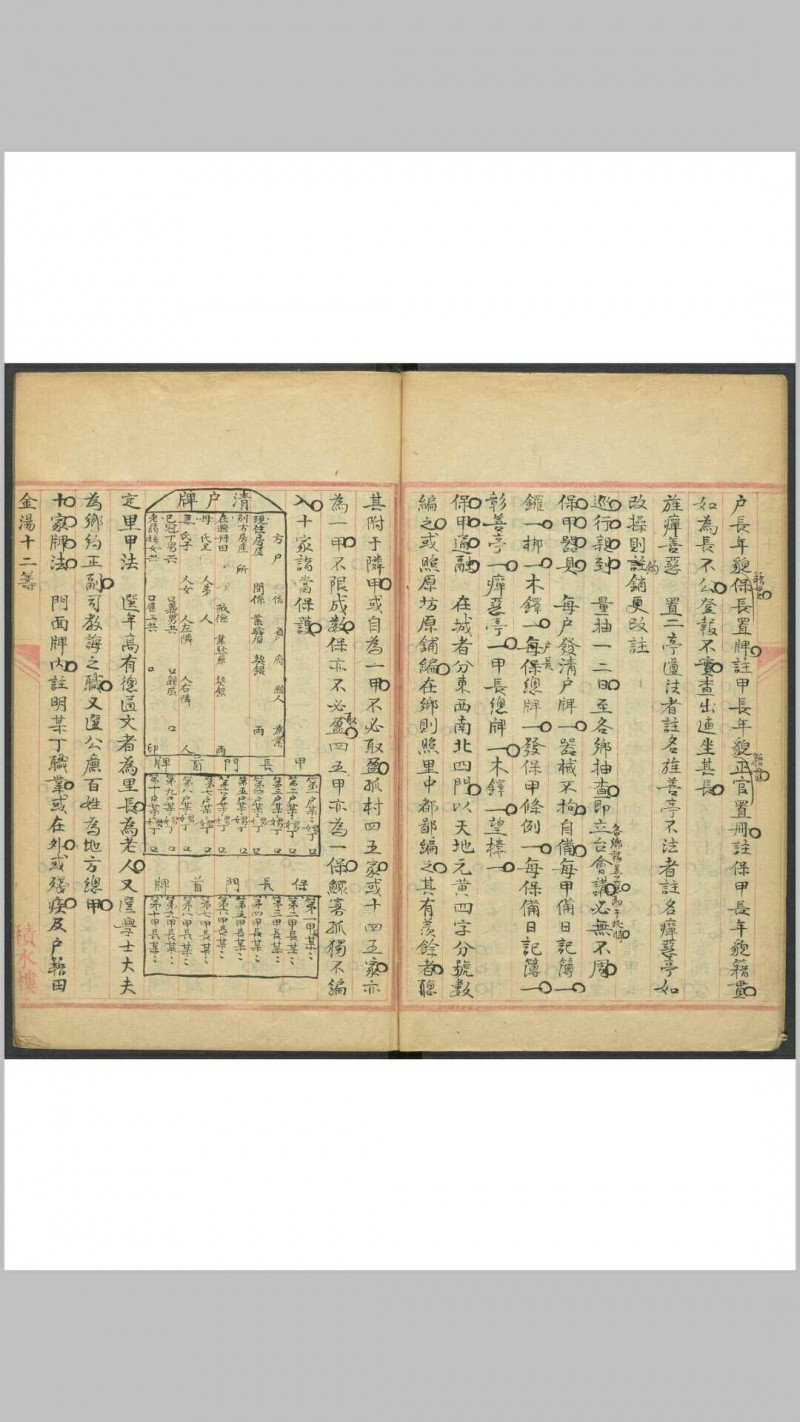 户長年貌保長置牌註甲長年貌正官置冊註保甲長年貌籍貫
如為長不公登報不實查出連坐其長
旌癉善惡 置二亭匾法者註名旌善亭不法者註名癉惡亭如
改操則註銷更改註
巡行親到 量抽一二日至各鄉抽查即立台會講必無不周
保甲器具 每户發清户牌一器械不拘自備每甲備日記簿一
鑼一梆一木鐸一每保總牌一發保甲條例一每保備日記簿一
彰善亭一癉惡亭一甲長總牌一木鐸一望樓一
保甲通融 在城者分東西南北四門以天地元黄四字分號数
編之或照原坊原鋪編在鄉則照里中都鄙編之其有羨餘者聽
其附于隣甲或自為一甲不必取盈孤村四五家或十四五家亦
為一甲不限成数保亦不必取盈四五甲亦為一保鰥寡孤獨不編
入十家諸當保護
清户牌
甲長門首牌
第一户某男婦丁口
第二户某男婦丁口
第三户某男婦丁口
第四户某男婦丁口
第五户某男婦丁口
第六户某男婦丁口
第七户某男婦丁口
第八户某男婦丁口
第九户某男婦丁口
第十户某男婦丁口
保長門首牌
第一甲長某
第二甲長某
第三甲長某
第四甲長某
第五甲長某
第六甲長某
第七甲長某
第八甲長某
第九甲長某
第十甲長某
定里甲法 選年高有德匾文者為里長為老人又選學士大夫
為鄉約正副司教誨之職又選公廉百姓為地方總甲
十家牌法 門面牌内註明某丁職業或在外或殘疾及户籍田
金湯十二等
積水樓